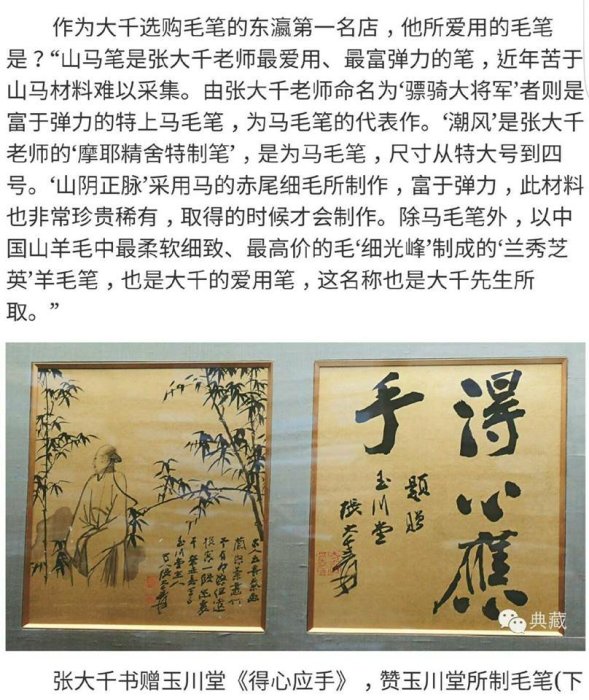 作为大千选购毛笔的东瀛第一名店，他所爱用的毛笔
是？“山马笔是张大千老师最爱用、最富弹力的笔，近年苦于
山马材料难以采集。由张大千老师命名为‘骠骑大将军’者则是
富于弹力的特上马毛笔，为马毛笔的代表作。‘潮风’是张大千
老师的‘摩耶精舍特制笔’，是为马毛笔，尺寸从特大号到四
号。‘山阴正脉’采用马的赤尾细毛所制作，富于弹力，此材料
也非常珍贵稀有，取得的时候才会制作。除马毛笔外，以中
国山羊毛中最柔软细致、最高价的毛‘细光峰’制成的‘兰秀芝
英’羊毛笔，也是大千的爱用笔，这名称也是大千先生所
取。”
得心應
手
題贈
玉川堂
張大千
典藏
张大千书赠玉川堂《得心应手》，赞玉川堂所制毛笔(下